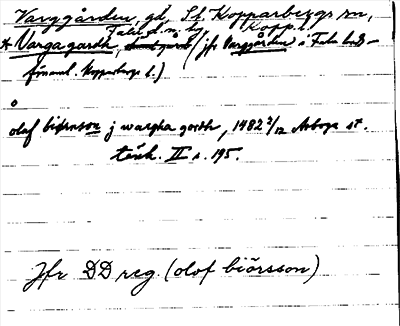 Varggården, gd, St. Kopparbergs sn,
Falu l. m. by, Kopp. l.
* Vargagardh, (jfr Varggården i Falu lands-
församl. Kopparbergs l.)
olaf biørnson j wargha gordh, 1482 2/12 Arboga st.
tänk. II s. 195.
Jfr DD reg. (olof biörsson)